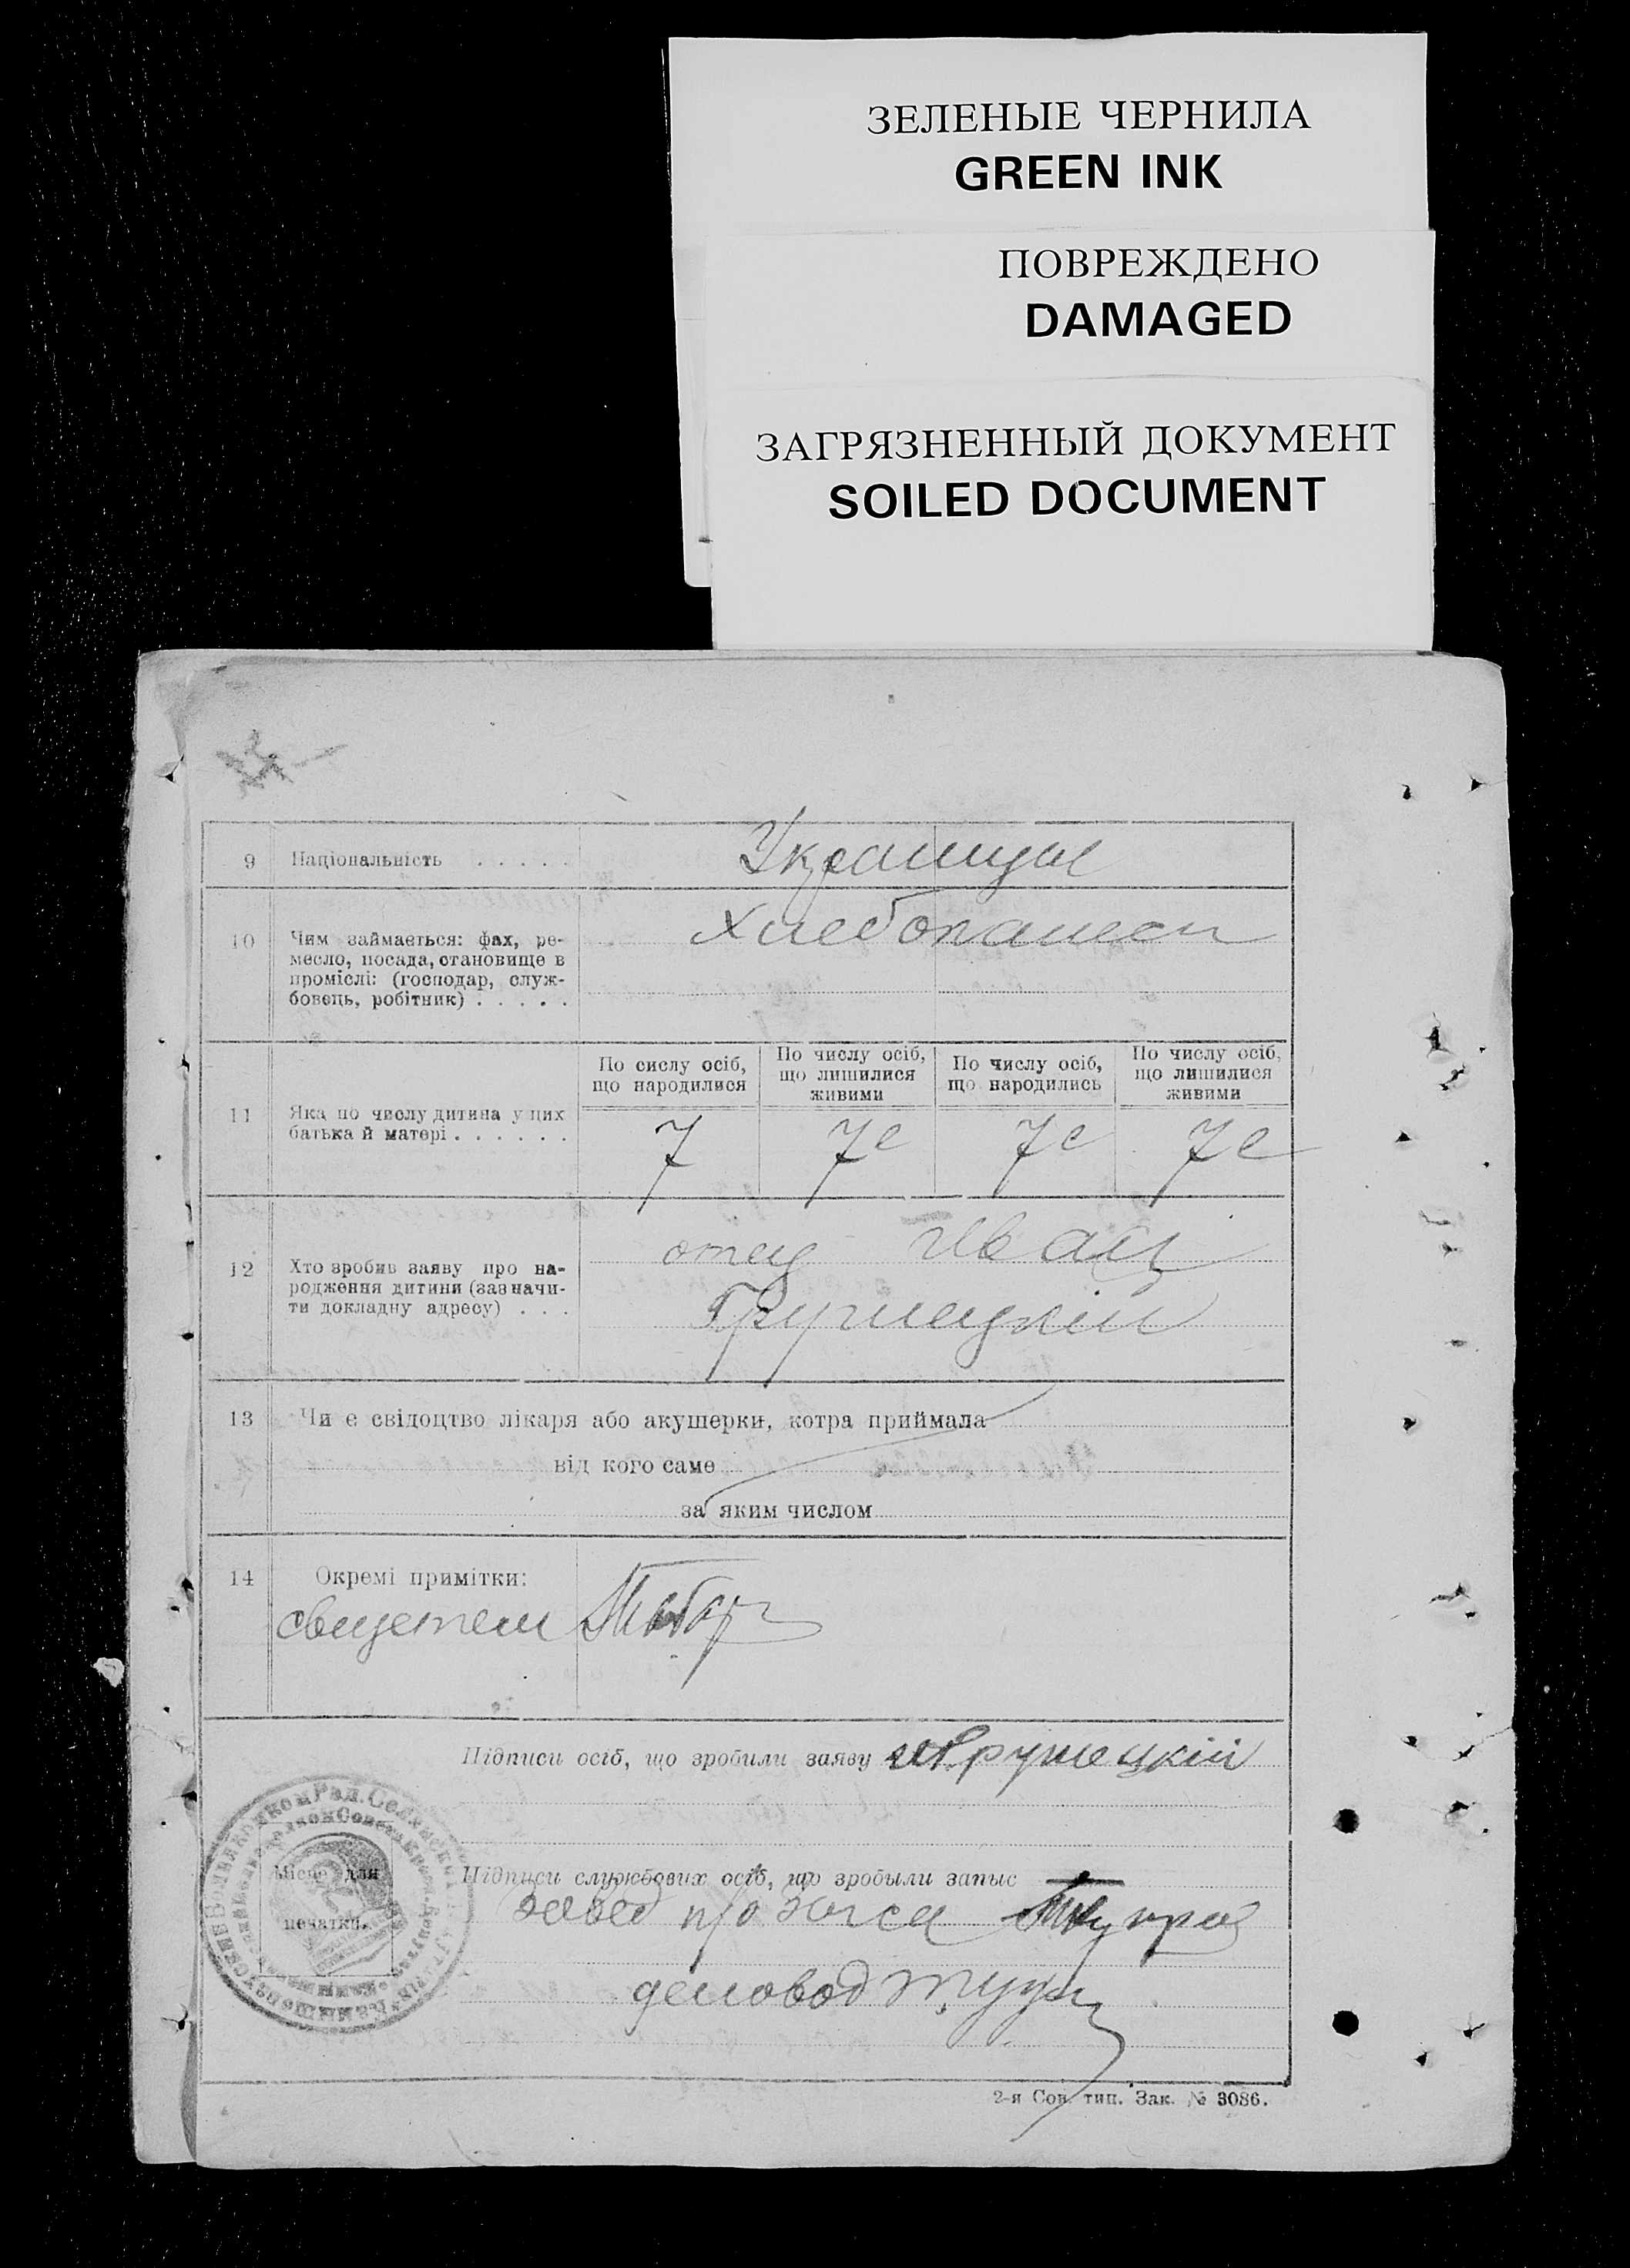 ЗЕЛЕНЫЕ ЧЕРНИЛА
GREEN INK
ПОВРЕЖДЕНО
DAMAGED
ЗАГРЯЗНЕННЫЙ ДОКУМЕНТ
SOILED DOCUMENT
9 Національність . . . . . Украинцы
10 Чим займається: фах, ре-
месло, посада, становище в
проміслі: (господар, служ-
бовець, робітник) . . . . .
Хлебопашеси
По сислу осіб,
що народилися
По числу осіб,
що лишилися
живими
По числу осіб,
що народились
По числу осіб,
що лишилися
живими
11 Яка по числу дитина у цих
батька й матері . . . . . .
7 7е 7е 7е
12 Хто зробив заяву про на-
родження дитини (зазначи-
ти докладну адресу) . . .
отец Иван
Грушецкій
13 Чи є свідоцтво лікаря або акушерки, котра приймала
від кого саме
за яким числом
14 Окремі примітки:
свидетели
Підписи осіб, що зробили заяву Грушецкій
Місце для
печатки.
Підписи службових осіб, що зробыли запыс
Завед п/о Загса
деловод
2-я Сов. тип. Зак. № 3086.